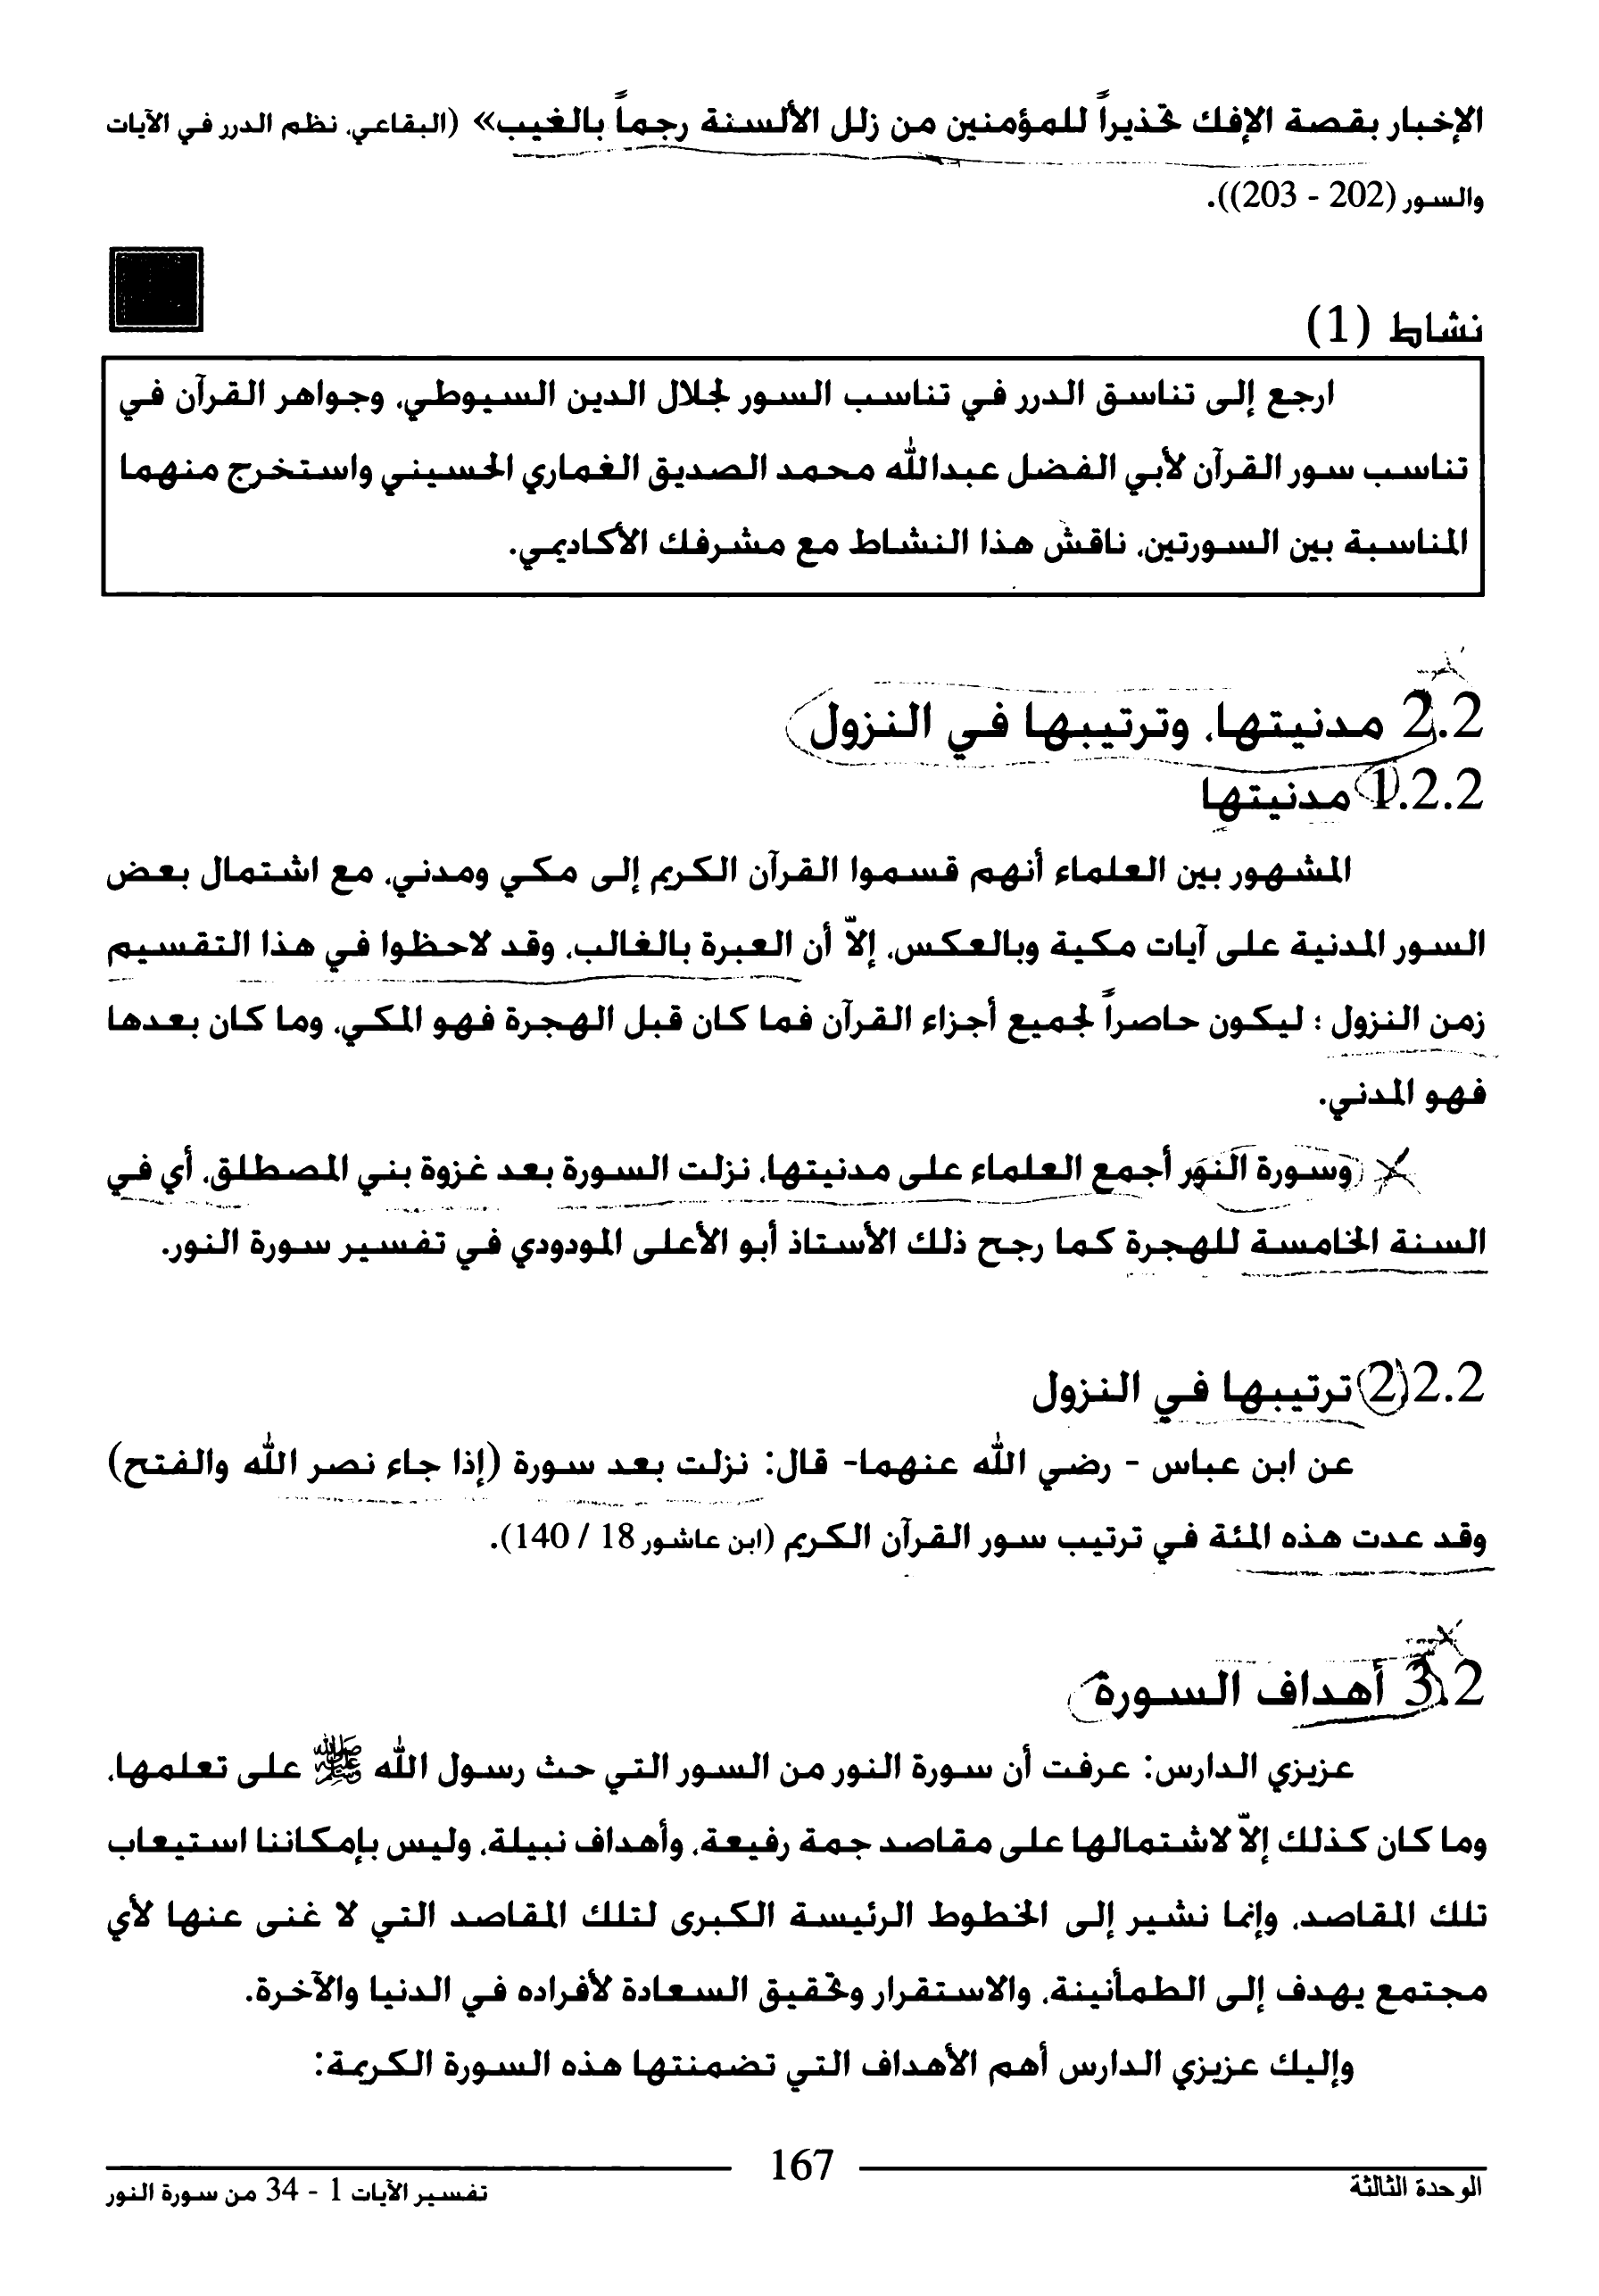 الإخبار بقصة الإفك تحذيراً للمؤمنين من زلل الألسنة رجماً بالغيب» (البقاعي، نظم الدرر في الآيات
والسور (202 - 203)).
نشاط (1)
ارجع إلى تناسق الدرر في تناسب السور لجلال الدين السيوطي، وجواهر القرآن في
تناسب سور القرآن لأبي الفضل عبدالله محمد الصديق الغماري الحسيني واستخرج منهما
المناسبة بين السورتين، ناقش هذا النشاط مع مشرفك الأكاديمي.
2.2 مدنيتها، وترتيبها في النزول
1.2.2 مدنيتها
المشهور بين العلماء أنهم قسموا القرآن الكريم إلى مكي ومدني، مع اشتمال بعض
السور المدنية على آيات مكية وبالعكس، إلاّ أن العبرة بالغالب، وقد لاحظوا في هذا التقسيم
زمن النزول ؛ ليكون حاصراً لجميع أجزاء القرآن فما كان قبل الهجرة فهو المكي، وما كان بعدها
فهو المدني.
وسورة النور أجمع العلماء على مدنيتها، نزلت السورة بعد غزوة بني المصطلق، أي في
السنة الخامسة للهجرة كما رجح ذلك الأستاذ أبو الأعلى المودودي في تفسير سورة النور.
2.2.2 ترتيبها في النزول
عن ابن عباس - رضي الله عنهما- قال: نزلت بعد سورة (إذا جاء نصر الله والفتح)
وقد عدت هذه المئة في ترتيب سور القرآن الكريم (ابن عاشور 18 / 140).
3.2 أهداف السورة
عزيزي الدارس: عرفت أن سورة النور من السور التي حث رسول الله ﷺ على تعلمها،
وما كان كذلك إلاّ لاشتمالها على مقاصد جمة رفيعة، وأهداف نبيلة، وليس بإمكاننا استيعاب
تلك المقاصد، وإنما نشير إلى الخطوط الرئيسة الكبرى لتلك المقاصد التي لا غنى عنها لأي
مجتمع يهدف إلى الطمأنينة، والاستقرار وتحقيق السعادة لأفراده في الدنيا والآخرة.
وإليك عزيزي الدارس أهم الأهداف التي تضمنتها هذه السورة الكريمة:
الوحدة الثالثة
167
تفسير الآيات 1 - 34 من سورة النور